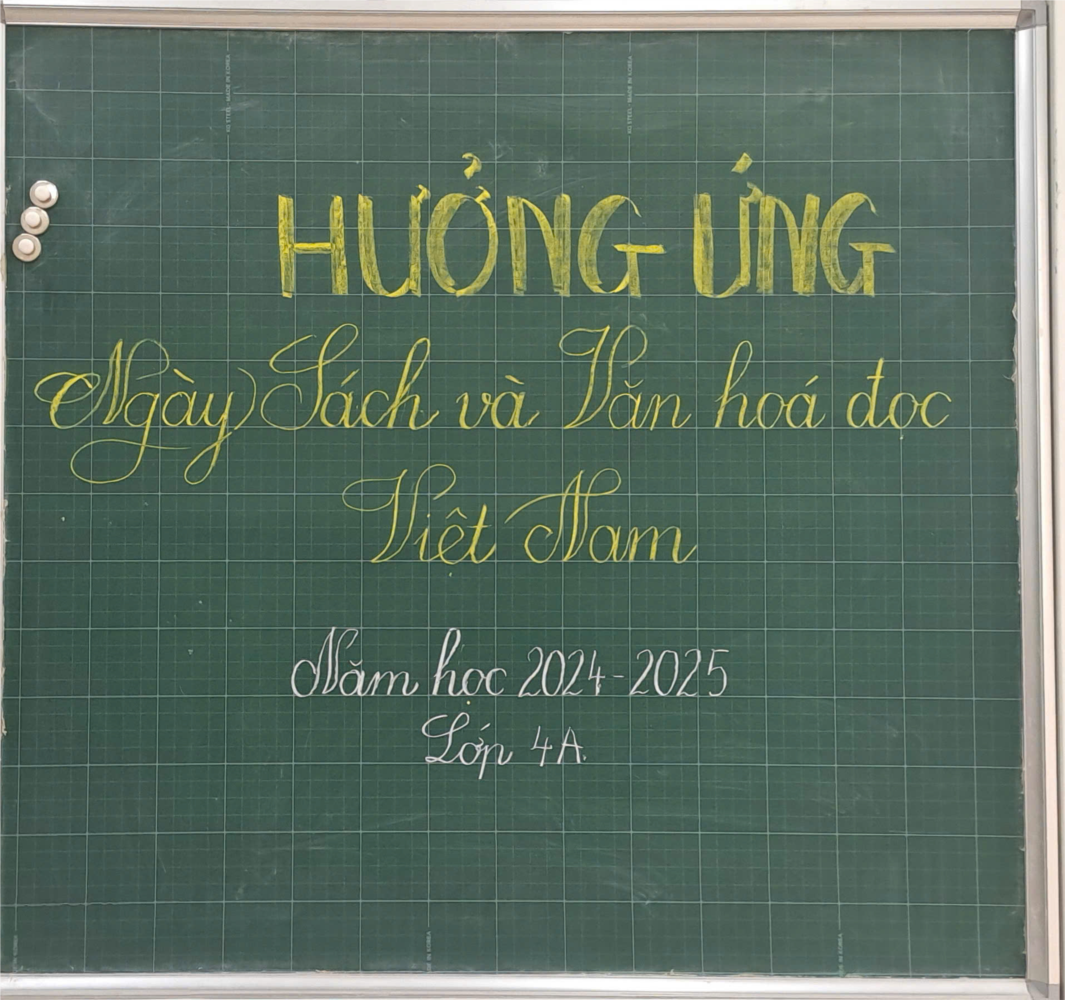 HƯỞNG ỨNG
Ngày Sách và Văn hoá đọc
Việt Nam
Năm học 2024-2025
Lớp 4A